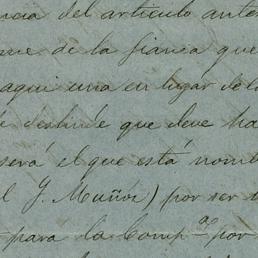 ncia del articulo ante
me de la fianca que
aqui una en lugar de l
deslinde que deve ha
será el que está nomb
l J. Muñoz) por ser
para la Comp.ª por